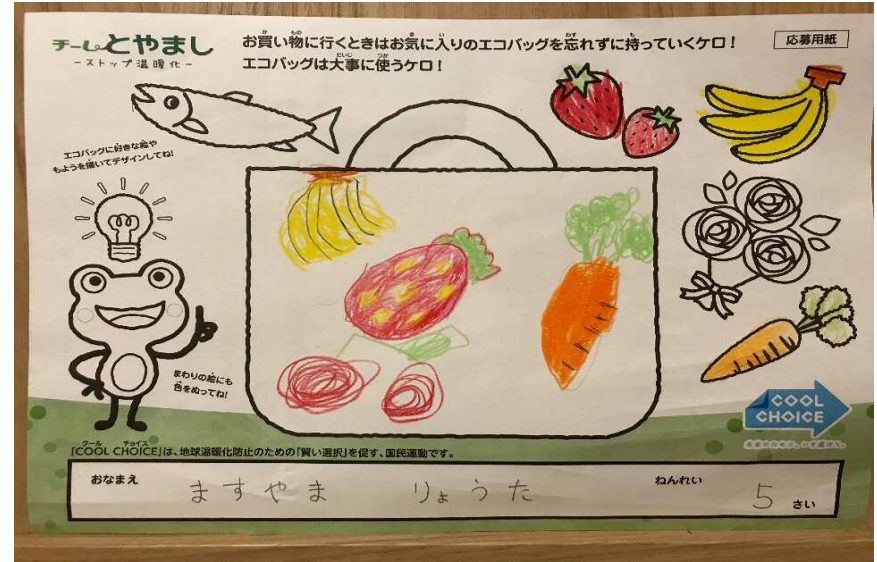 チームとやまし
-ストップ温暖化-
お買い物に行くときはお気に入りのエコバッグを忘れずに持っていくケロ！
エコバッグは大事に使うケロ！
応募用紙
エコバッグに好きな絵や
もようを描いてデザインしてね!
まわりの絵にも
色をぬってね!
COOL
CHOICE
「COOL CHOICE」は、地球温暖化防止のための「賢い選択」を促す、国民運動です。
おなまえ ますやま りょうた ねんれい 5 さい